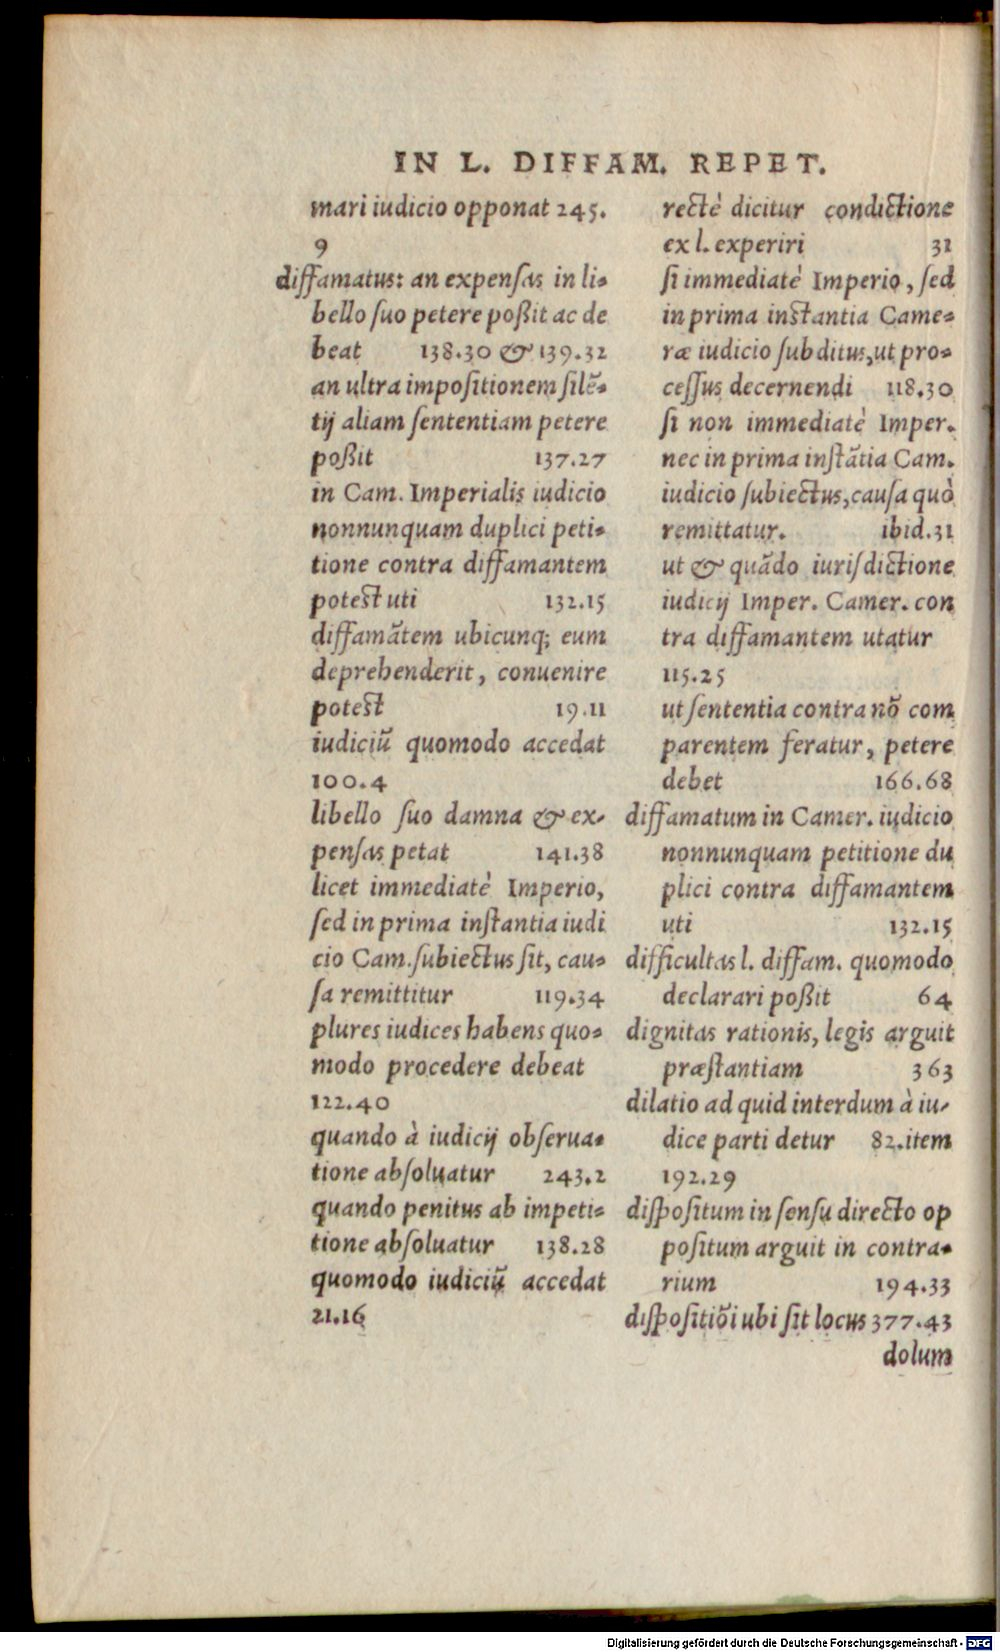 IN L. DIFFAM. REPET.
mari iudicio opponat 245.
9
diffamatus: an expensas in li-
bello suo petere poßit ac de
beat 138.30 & 139.32
an ultra impositionem silē-
tij aliam sententiam petere
poßit 137.27
in Cam. Imperialis iudicio
nonnunquam duplici peti-
tione contra diffamantem
potest uti 132.15
diffamātem ubicunq; eum
deprehenderit, conuenire
potest 19.11
iudiciū quomodo accedat
100.4
libello suo damna & ex-
pensas petat 141.38
licet immediatè Imperio,
sed in prima instantia iudi
cio Cam. subiectus sit, cau-
sa remittitur 119.34
plures iudices habens quo-
modo procedere debeat
122.40
quando à iudicij obserua-
tione absoluatur 243.2
quando penitus ab impeti-
tione absoluatur 138.28
quomodo iudiciū accedat
21.16
rectè dicitur condictione
ex l. experiri 31
si immediatè Imperio, sed
in prima instantia Came-
ræ iudicio subditus, ut pro-
cessus decernendi 118.30
si non immediatè Imper.
nec in prima instātia Cam.
iudicio subiectus, causa quò
remittatur. ibid.31
ut & quādo iurisdictione
iudicij Imper. Camer. con
tra diffamantem utatur
115.25
ut sententia contra nō com
parentem feratur, petere
debet 166.68
diffamatum in Camer. iudicio
nonnunquam petitione du
plici contra diffamantem
uti 132.15
difficultas l. diffam. quomodo
declarari poßit 64
dignitas rationis, legis arguit
præstantiam 363
dilatio ad quid interdum à iu-
dice parti detur 82. item
192.29
dispositum in sensu directo op
positum arguit in contra-
rium 194.33
dispositiōi ubi sit locus 377.43
dolum
Digitalisierung gefördert durch die Deutsche Forschungsgemeinschaft - DFG